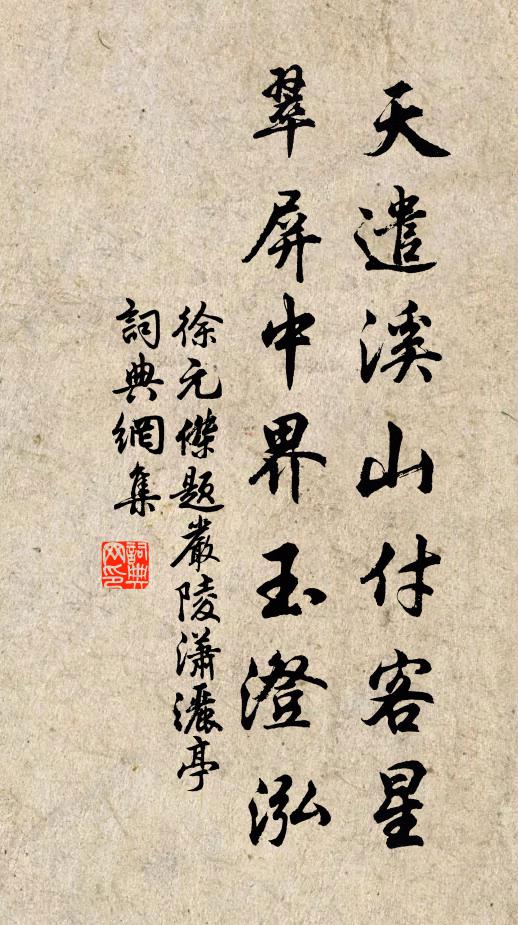 天遣溪山付客星
翠屏中界玉澄泓
徐元傑題嚴陵瀟灑亭
詞典網集
詞典
网印